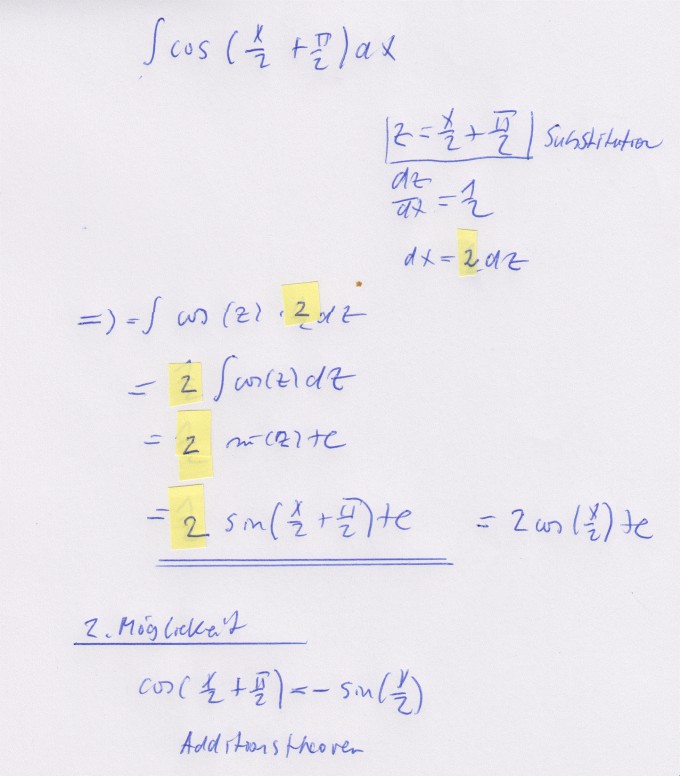 ∫ cos (x/2 + π/2) dx
|z = x/2 + π/2| Substitution
dz/dx = 1/2
dx = 2 dz
=) = ∫ cos (z) · 2 dz
= 2 ∫ cos(z) dz
= 2 sin(z) + c
= 2 sin(x/2 + π/2) + c = 2 cos(x/2) + c
2. Möglichkeit
cos(x/2 + π/2) = - sin(x/2)
Additionstheorem